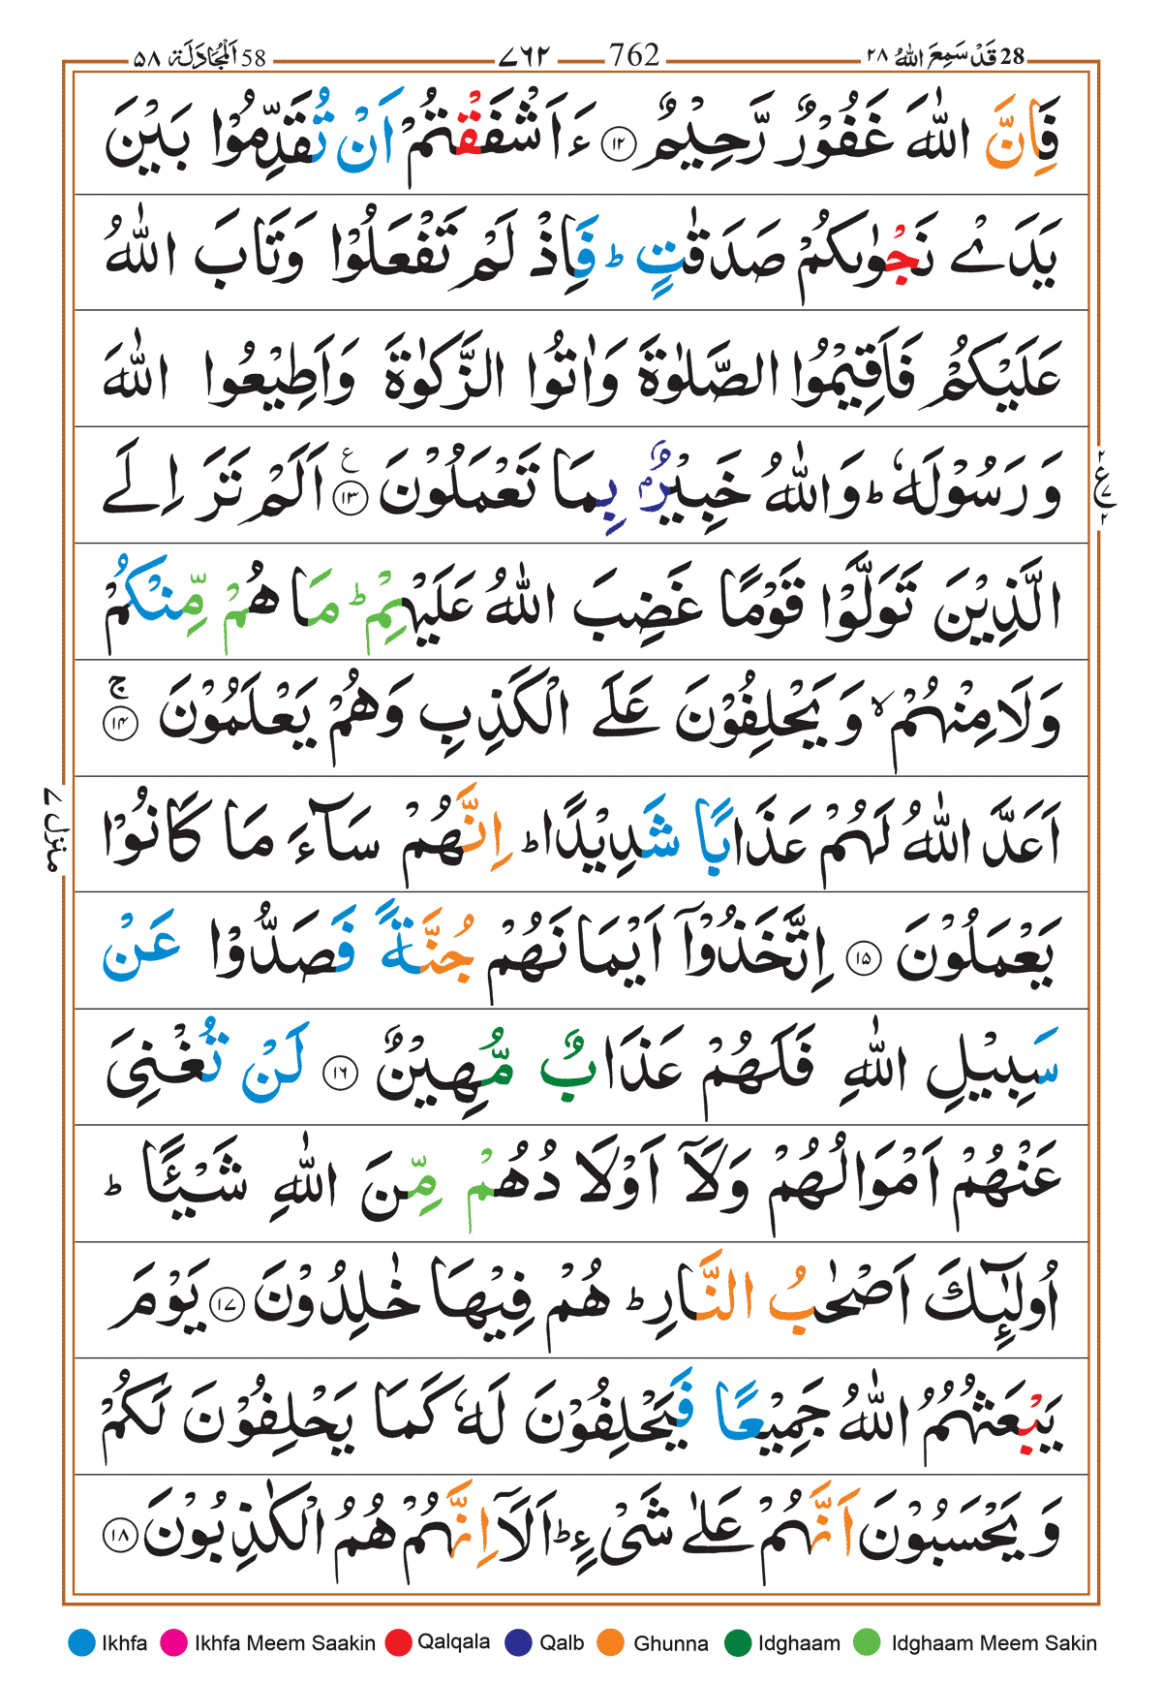 28 قَدْ سَمِعَ اللّٰهُ ۲۸ 762 ۷۶۲ 58 اَلْمُجَادَلَة ۵۸
فَاِنَّ اللّٰهَ غَفُوْرٌ رَّحِيْمٌ ۱۲ ءَاَشْفَقْتُمْ اَنْ تُقَدِّمُوْا بَيْنَ
يَدَىْ نَجْوٰىكُمْ صَدَقٰتٍ ؕ فَاِذْ لَمْ تَفْعَلُوْا وَتَابَ اللّٰهُ
عَلَيْكُمْ فَاَقِيْمُوا الصَّلٰوةَ وَاٰتُوا الزَّكٰوةَ وَاَطِيْعُوا اللّٰهَ
وَرَسُوْلَهٗ ؕ وَاللّٰهُ خَبِيْرٌۢ بِمَا تَعْمَلُوْنَ ۱۳ ع اَلَمْ تَرَ اِلَى
۲ ع ۷ ۲
الَّذِيْنَ تَوَلَّوْا قَوْمًا غَضِبَ اللّٰهُ عَلَيْهِمْ ؕ مَا هُمْ مِّنْكُمْ
وَلَا مِنْهُمْ ۙ وَيَحْلِفُوْنَ عَلَى الْكَذِبِ وَهُمْ يَعْلَمُوْنَ ۱۴ ج
اَعَدَّ اللّٰهُ لَهُمْ عَذَابًا شَدِيْدًا ؕ اِنَّهُمْ سَآءَ مَا كَانُوْا
منزل ۷
يَعْمَلُوْنَ ۱۵ اِتَّخَذُوْٓا اَيْمَانَهُمْ جُنَّةً فَصَدُّوْا عَنْ
سَبِيْلِ اللّٰهِ فَلَهُمْ عَذَابٌ مُّهِيْنٌ ۱۶ لَنْ تُغْنِىَ
عَنْهُمْ اَمْوَالُهُمْ وَلَآ اَوْلَادُهُمْ مِّنَ اللّٰهِ شَيْـًٔا ؕ
اُولٰٓئِكَ اَصْحٰبُ النَّارِ ؕ هُمْ فِيْهَا خٰلِدُوْنَ ۱۷ يَوْمَ
يَبْعَثُهُمُ اللّٰهُ جَمِيْعًا فَيَحْلِفُوْنَ لَهٗ كَمَا يَحْلِفُوْنَ لَكُمْ
وَيَحْسَبُوْنَ اَنَّهُمْ عَلٰى شَىْءٍ ؕ اَلَآ اِنَّهُمْ هُمُ الْكٰذِبُوْنَ ۱۸
Ikhfa Ikhfa Meem Saakin Qalqala Qalb Ghunna Idghaam Idghaam Meem Sakin